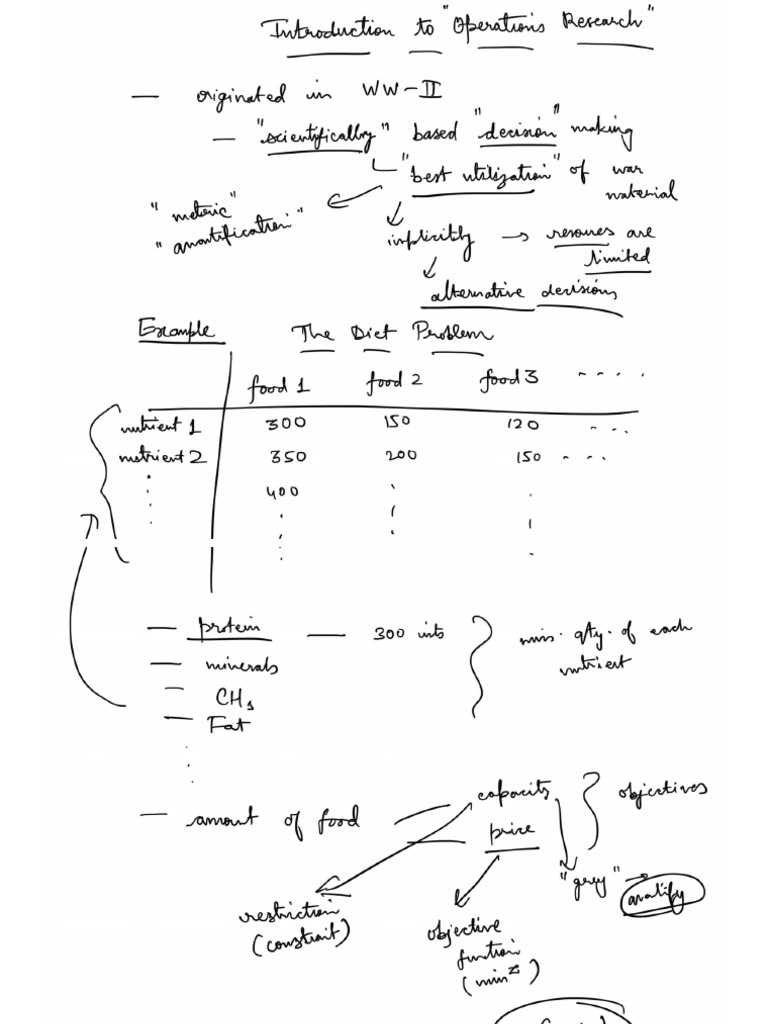 Introduction to "Operations Research"
— originated in WW-II
— "scientifically" based "decision" making
"best utilization" of war material
"metric"
"quantification"
implicitly → resources are limited
alternative decisions
Example The Diet Problem
food 1 food 2 food 3 ....
nutrient 1 300 150 120 ...
nutrient 2 350 200 150 ...
400
— protein — 300 units
min. qty. of each nutrient
— minerals
— CHs
— Fat
— amount of food — capacity
— price
objectives
"grey" →
restriction
(constrait)
objective
function
(min)